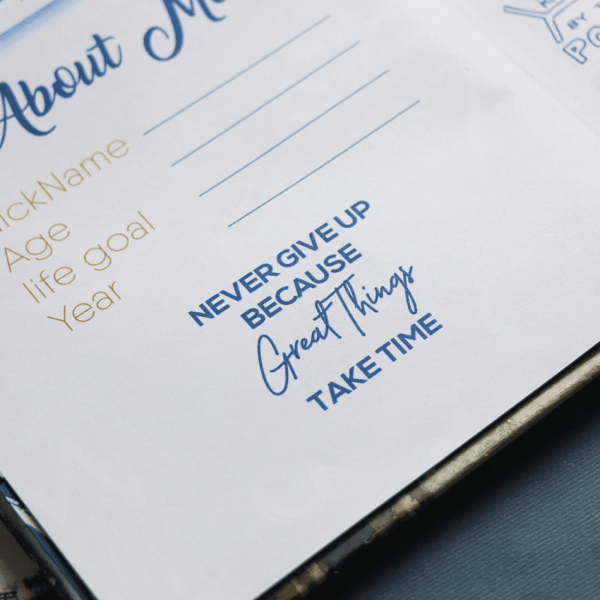 About
Age
life goal
Year
NEVER GIVE UP
BECAUSE
Great Things
TAKE TIME
BY